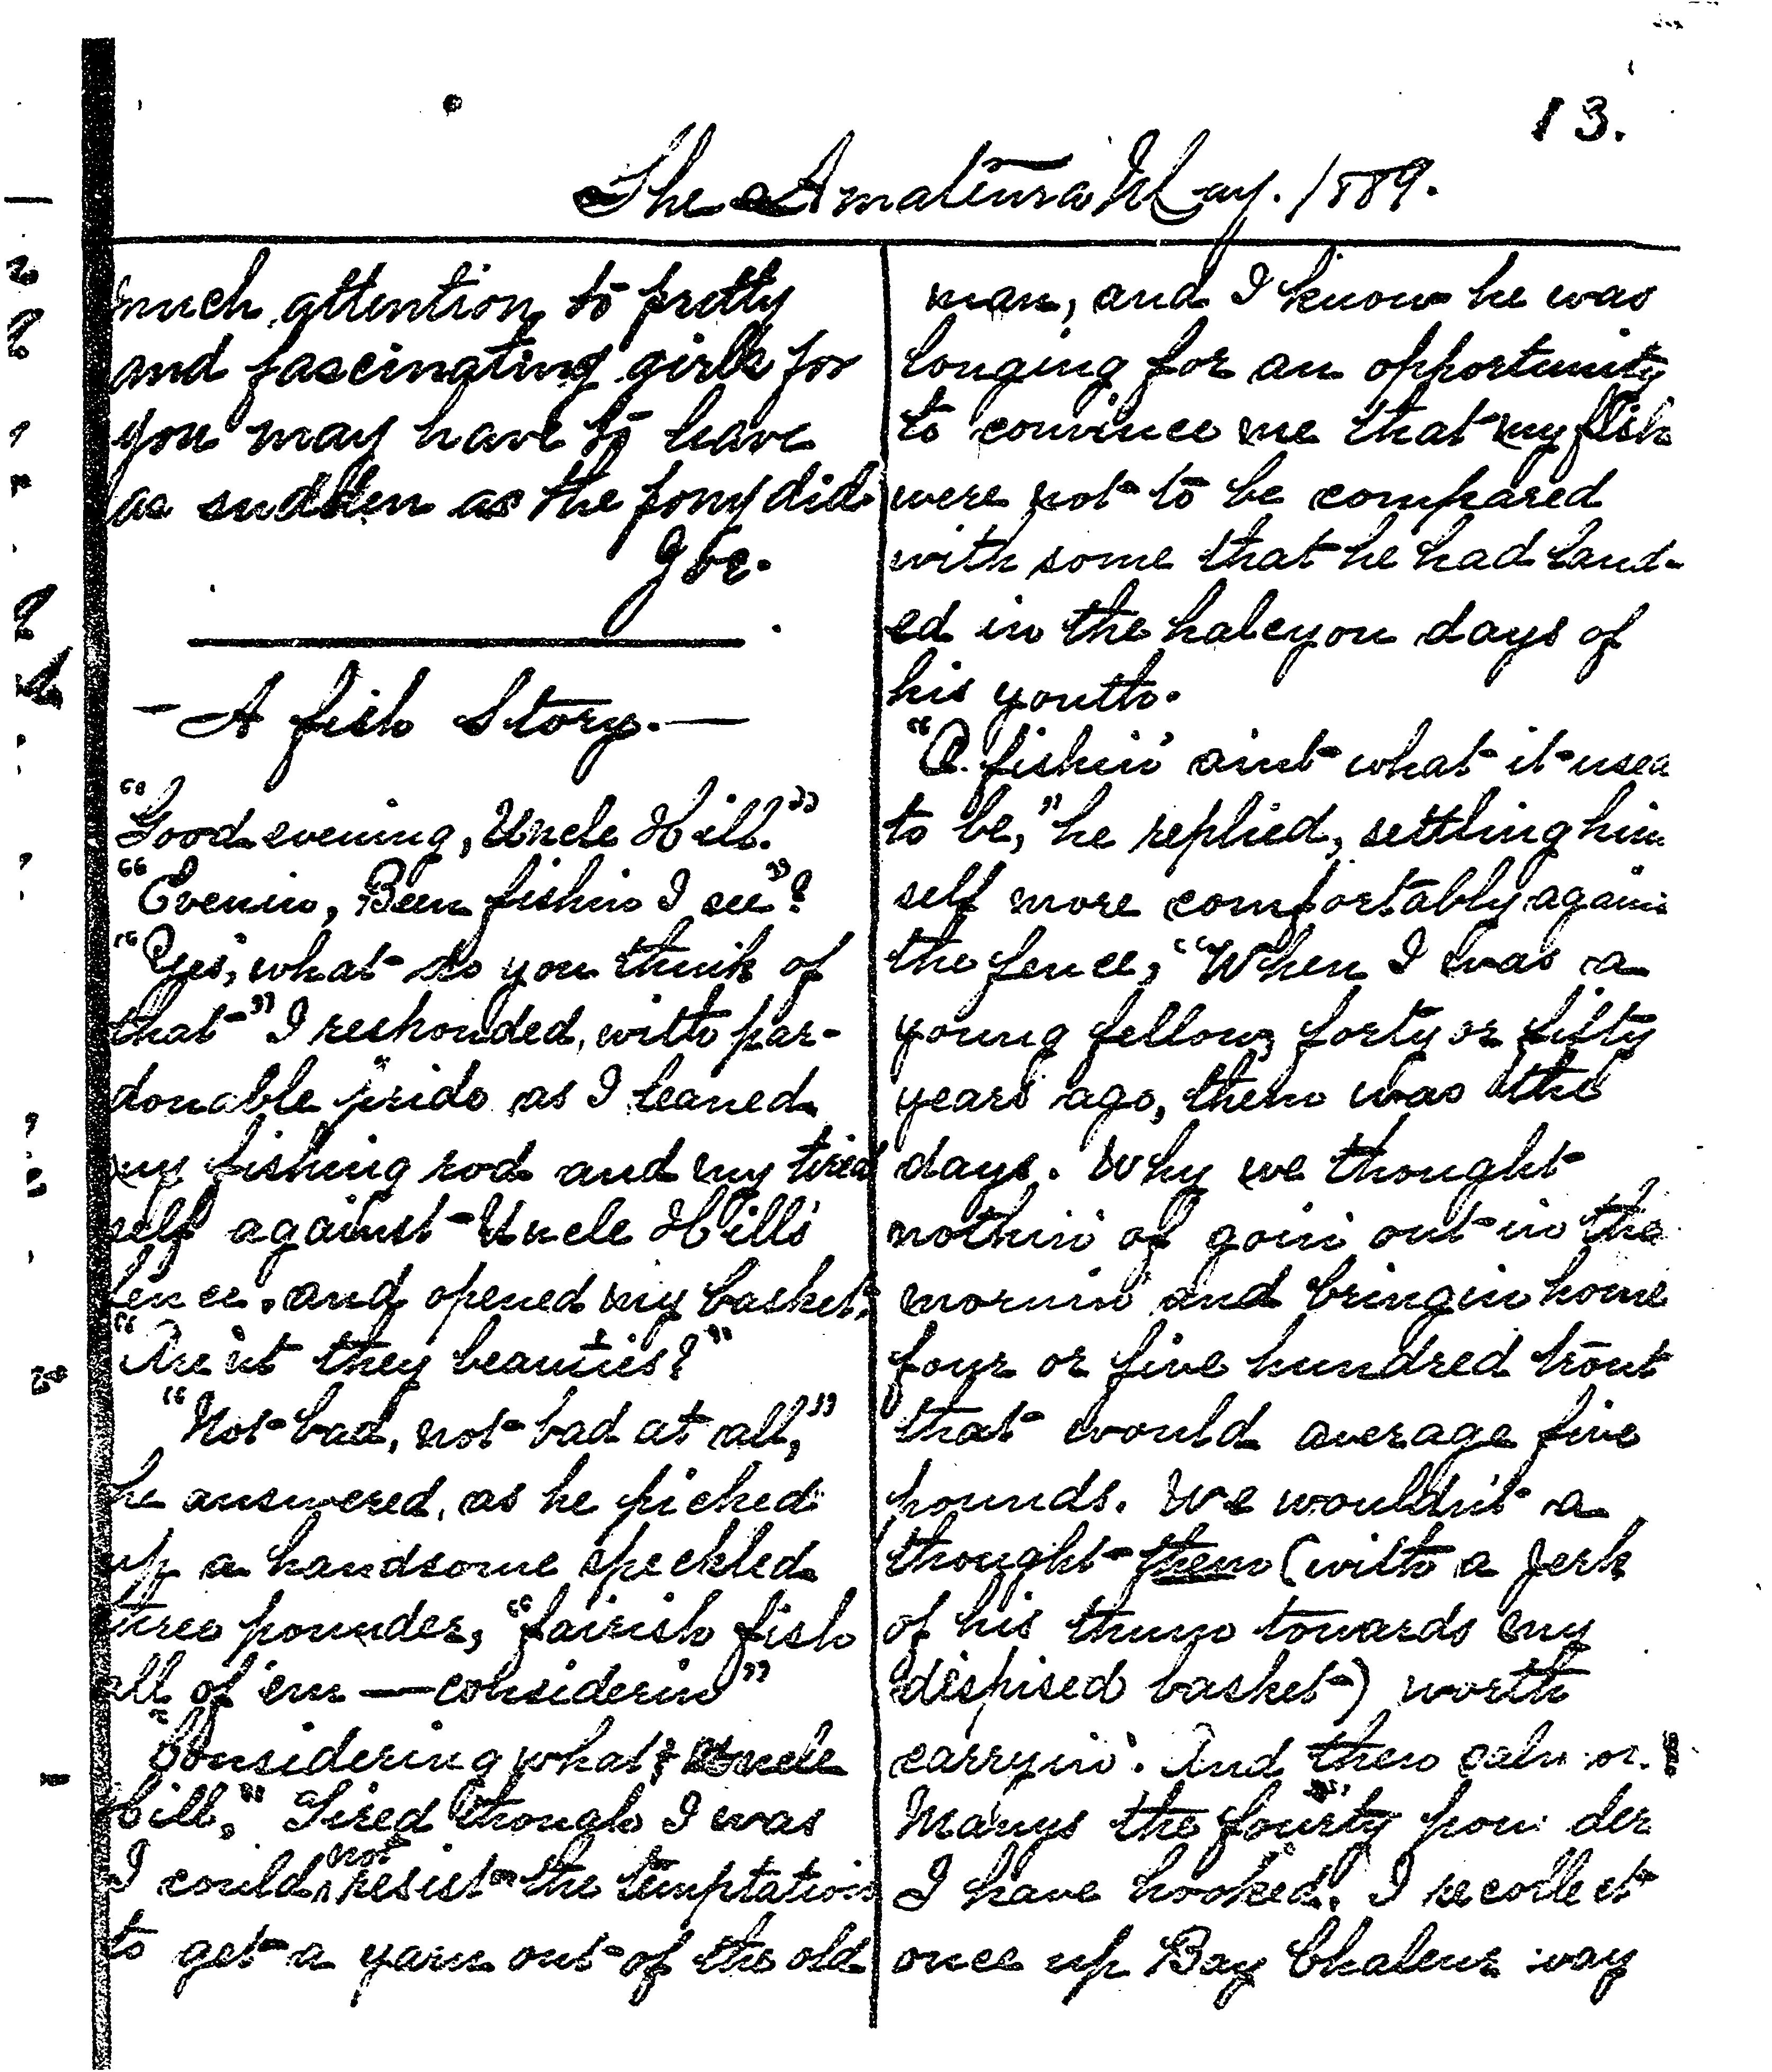 13.
The Amateur May. 1889.
much attention to pretty
and fascinating girls for
you may have to leave
as sudden as the pony did.
Joe.
— A fish Story. —
"Good evening, Uncle Hill."
"Evenin, Been fishin I see"?
"Yes, what do you think of
that" I reshonded, with par-
donable pride as I leaned
my fishing rod and my tired
self against Uncle Hills
fence, and opened my basket.
"Are'nt they beauties?"
"Not bad, not bad at all,"
he answered, as he picked
up a handsome speckled
three pounder, "fairish fish
all of 'em — considerin"
"Considering what, Uncle
Hill," Tired though I was
I could not resist the temptation
to get a yarn out of the old
man, and I know he was
longing for an opportunity
to convince me that my fish
were not to be compared
with some that he had land-
ed in the halcyon days of
his youth.
fishin' aint what it used
to be," he replied, settling him
self more comfortably agains
the fence, "When I was a
young fellow, forty or fifty
years ago, them was the
days. Why we thought
nothin' of goin' out in the
mornin' and bringin home
four or five hundred trout
that would average five
pounds. We wouldn't a
thought them (with a jerk
of his thum towards my
dispised basket) worth
carryin'. And then
Manys the pounder
I have hooked. I recollect
once up Bay Chaleur way